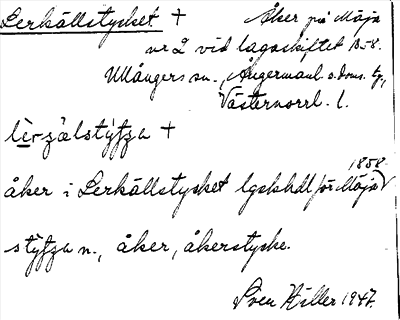 Lerkällstycket + Åker på Mäja
nr 2 vid lagaskiftet 1858.
Ullångers sn., Ångermanl. s. doms. tg,
Västernorrl. l.
lèrzälstýtza +
åker i Lerkällstycket lgskhdl för Mäja 1858
stýtza n., åker, åkerstycke.
Sven Hiller 1947.